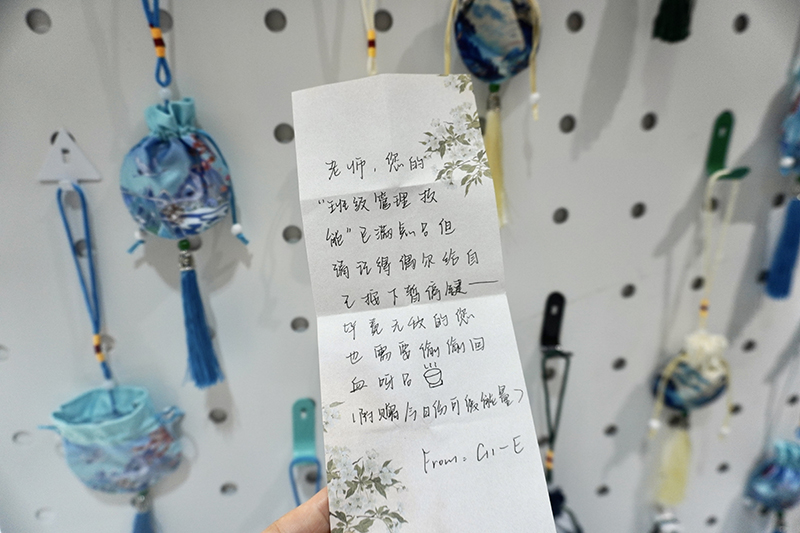 老师，您的
“班级管理技
能”已满点！但
请记得偶尔给自
己按下暂停键——
毕竟无敌的您
也需要偷偷回
血呀！
（附赠今日份可级能量）
From. G1-E